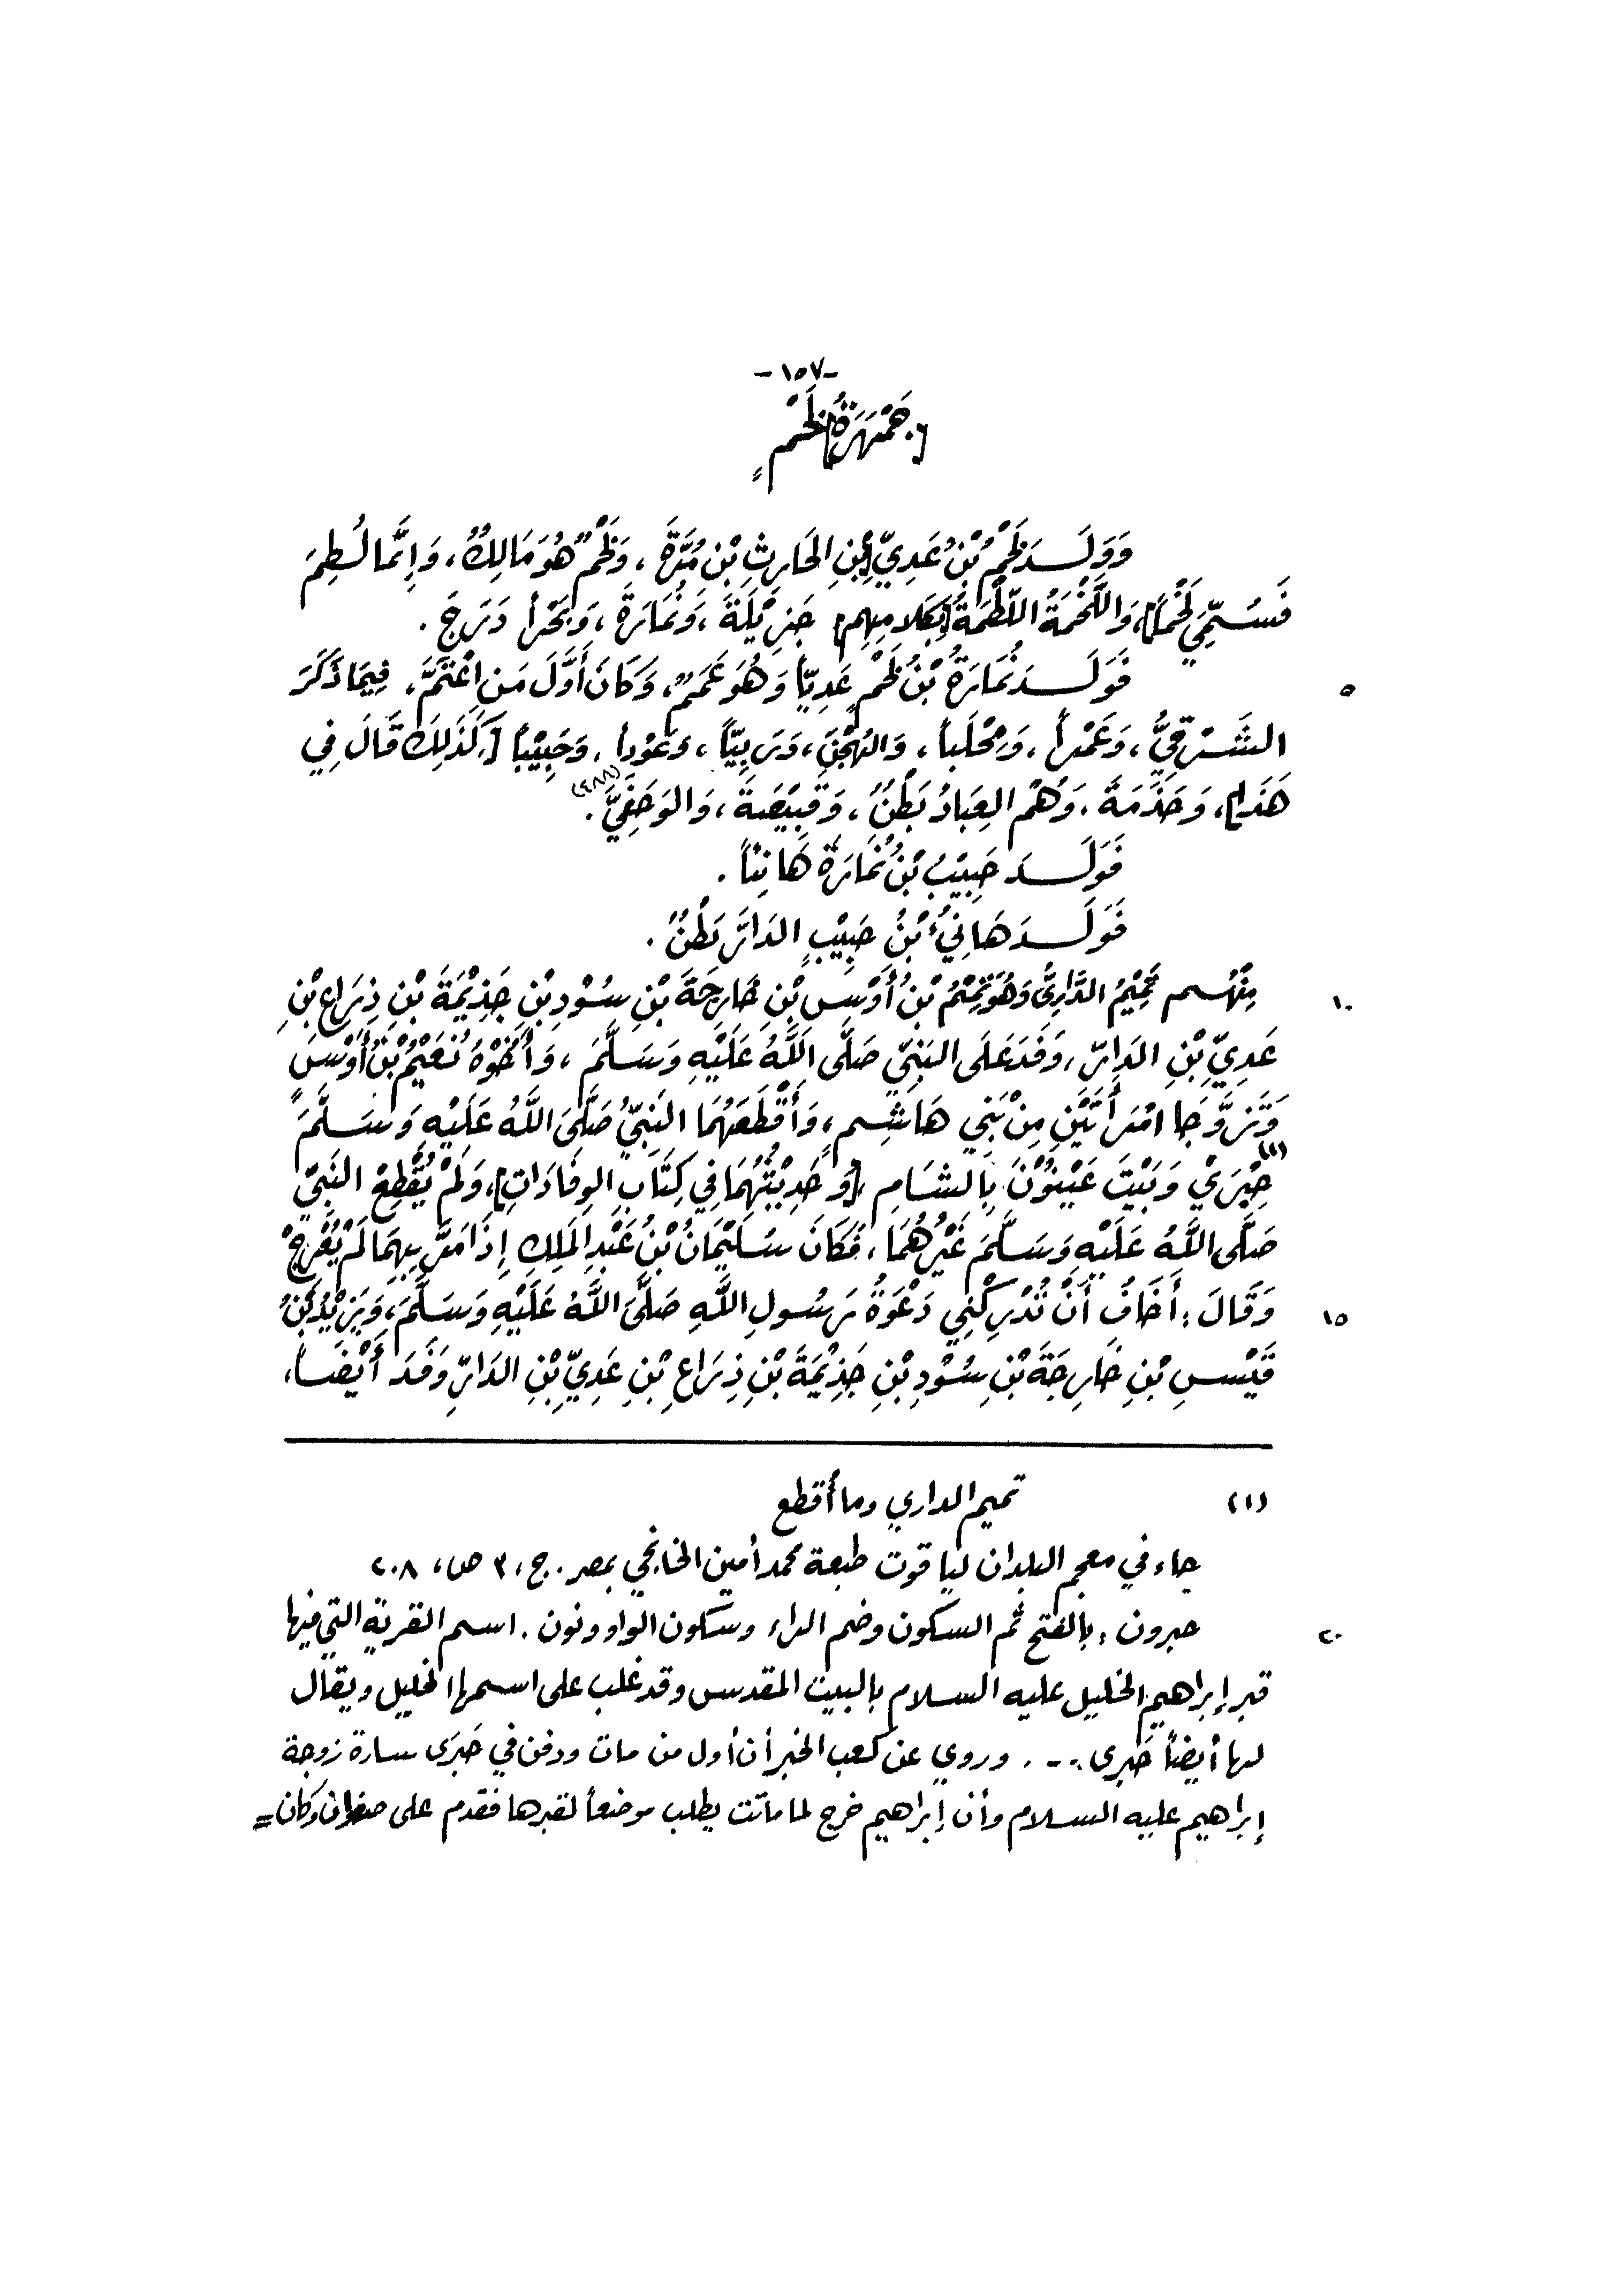 -١٥٧-
[جَمْهَرَةُ] لَخْمٍ
وَوَلَدَ لَخْمُ بْنُ عَدِيِّ [بْنِ الحَارِثِ بْنِ مُرَّةَ، وَلَخْمٌ هُوَ مَالِكٌ، وَإِنَّمَا لُطِمَ
فَسُمِّيَ لَخْمَاً]، وَاللَّخْمَةُ اللَّطْمَةُ [بِكَلامِهِم] جَزِيْلَةَ، وَنُمَارَةَ، وَبَحْراً دَرَجَ.
٥ فَوَلَدَ نُمَارَةُ بْنُ لَخْمٍ عَدِيّاً وَهُوَ عَمَمٌ، وَكَانَ أَوَّلَ مَنِ اعْتَمَّ، فِيمَا ذَكَرَ
الشَرْقِيُّ، وَعَمْراً، وَمِحْلَباً، وَالهُجْنَ، وَرَبِيّاً، وَعَوْداً، وَحَبِيْباً [كَذَلِكَ قَالَ فِي
هَذا]، وَحَذَمَةَ، وَهُمُ العِبَادُ بَطْنٌ، وَقَبِيْصَةَ، وَالوَحَفِيَّ. (٤٨٨)
فَوَلَدَ حَبِيْبُ بْنُ نُمَارَةَ هَانِئاً.
فَوَلَدَ هَانِيُءُ بْنُ حَبِيْبٍ الدَارَ بَطْنٌ.
١٠ مِنْهُم تَمِيْمُ الدَّارِيُّ وَهُوَ تَمِيْمُ بْنُ أَوْسِ بْنِ خَارِجَةَ بْنِ سُوْدِ بْنِ جَذِيْمَةَ بْنِ ذِرَاعِ بْنِ
عَدِيِّ بْنِ الدَارِ، وَفَدَ عَلَى النَبِيِّ صَلَّى اللَّهُ عَلَيْهِ وَسَلَّمَ، وَأَخُوْهُ نُعَيْمُ بْنُ أَوْسٍ
وَتَزَوَّجَا امْرَأَتَيْنِ مِنْ بَنِي هَاشِمٍ، وَأَقْطَعَهُمَا النَبِيُّ صَلَّى اللَّهُ عَلَيْهِ وَسَلَّمَ
حِبْرَيْ (١) وَبَيْتَ عَيْنُوْنَ بِالشَامِ، [وَحَدِيْثُهُمَا فِي كِتَابِ الوِفَادَاتِ]، وَلَمْ يُقْطِعْ النَبِيّ
صَلَّى اللَّهُ عَلَيْهِ وَسَلَّمَ غَيْرُهُمَا، فَكَانَ سُلَيْمَانُ بْنُ عَبْدِ المَلِكِ إِذَا مَرَّ بِهِمَا لَمْ يُعَرِّجْ
١٥ وَقَالَ: أَخَافُ أَنْ تُدْرِكْنِي دَعْوَةُ رَسُولِ اللَّهِ صَلَّى اللَّهُ عَلَيْهِ وَسَلَّمَ، وَيَزِيْدُ بْنُ
قَيْسِ بْنِ خَارِجَةَ بْنِ سُوْدِ بْنِ جَذِيْمَةَ بْنِ ذِرَاعِ بْنِ عَدِيِّ بْنِ الدَارِ وَفَدَ أَيْضَاً،
(١) تميم الداري وما أقطع
جاء في معجم البلدان لياقوت طبعة محمد أمين الخانجي بمصر. ج، ٣ ص، ٢٠٨
٢٠ حبرون: بالفتح ثم السكون وضم الراء وسكون الواو ونون. اسم القرية التي فيها
قبر إبراهيم الخليل عليه السلام بالبيت المقدس وقد غلب على اسمها الخليل ويقال
لها أيضاً حَبْرى... وروي عن كعب الخبر أن أول من مات ودفن في حَبرَى سارة زوجة
إبراهيم عليه السلام وأن إبراهيم خرج لما ماتت يطلب موضعاً لقبرها فقدم على صفوان وكان =